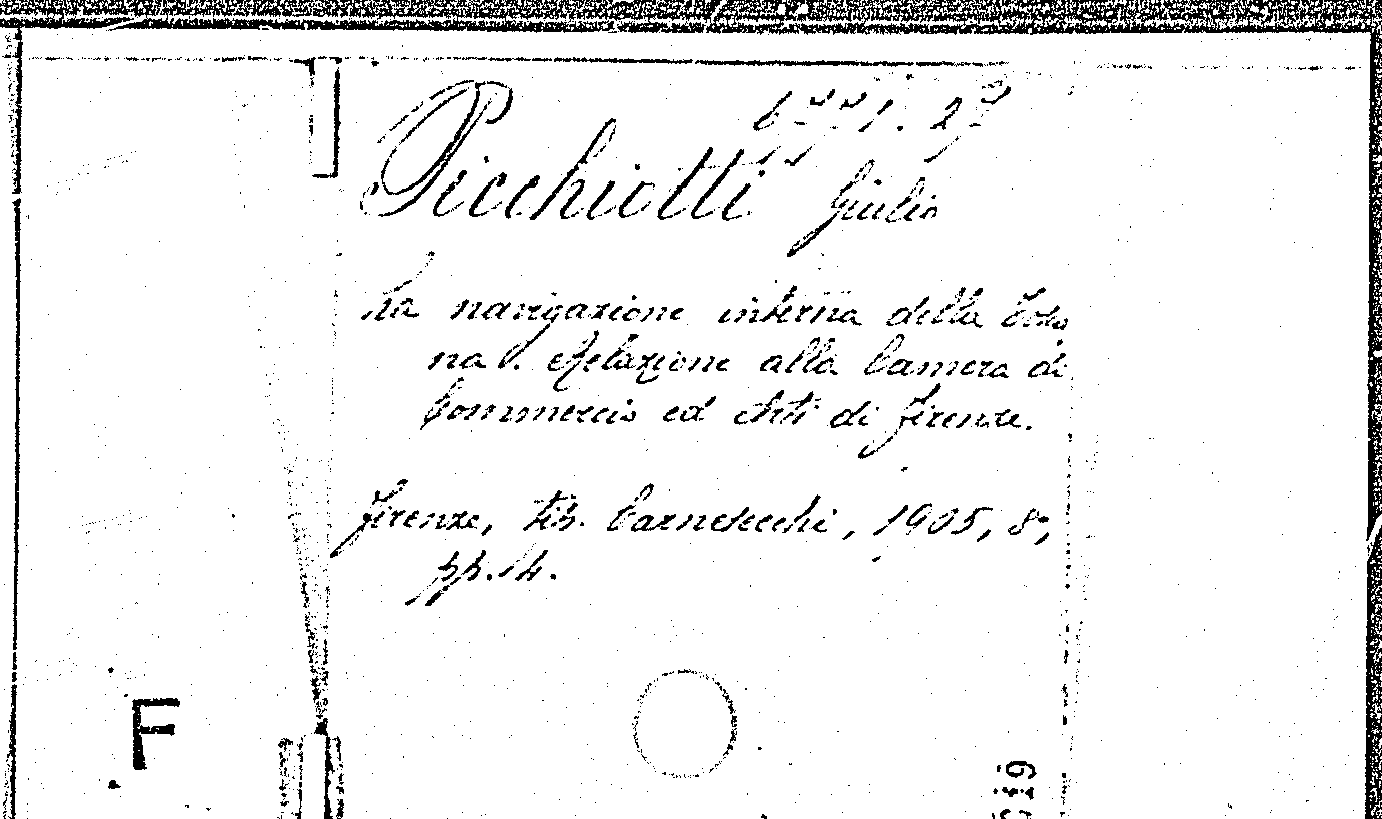 Picchiotti Giulio
La navigazione interna della Tosca
na. Relazione alla Camera di
Commercio ed Arti di Firenze.
Firenze, tip. Carnesecchi, 1905, 8°,
pp. 14.
F